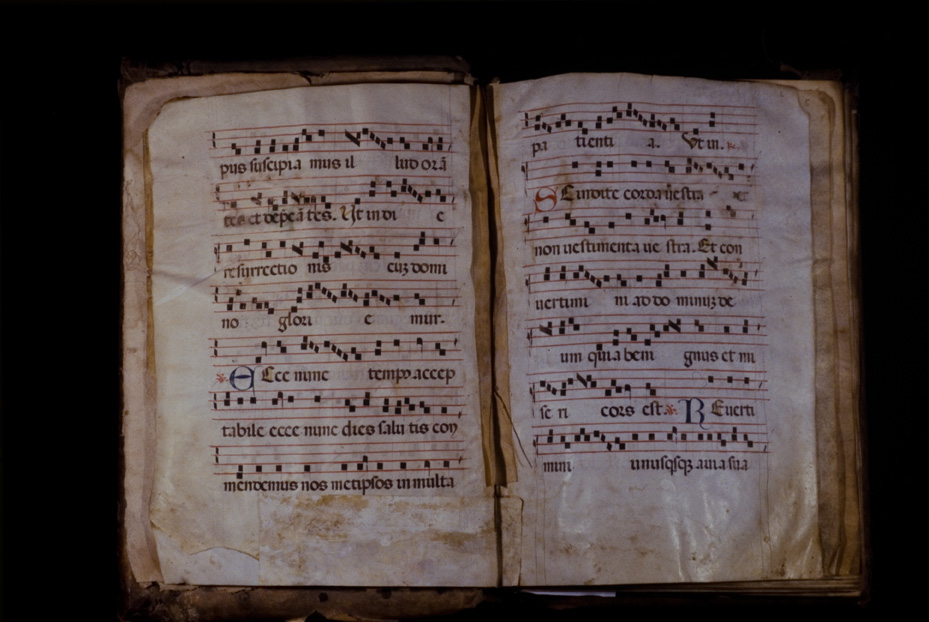 pus suscipia mus il lud orā
tes et depcā tes. Ut in di e
resurrectio nis cuz domi
no glori e mur.
Ecce nunc temp9 accep
tabile ecce nunc dies salu tis con
mendemus nos metipsos in multa
pa tienti a. Ut in.
Scindite corda uestra
non uestimenta ue stra. Et con
uertimi ni ad do minuz de
um quia beni gnus et mi
se ri cors est. Reuerti
mini unusqsqz a uia sua